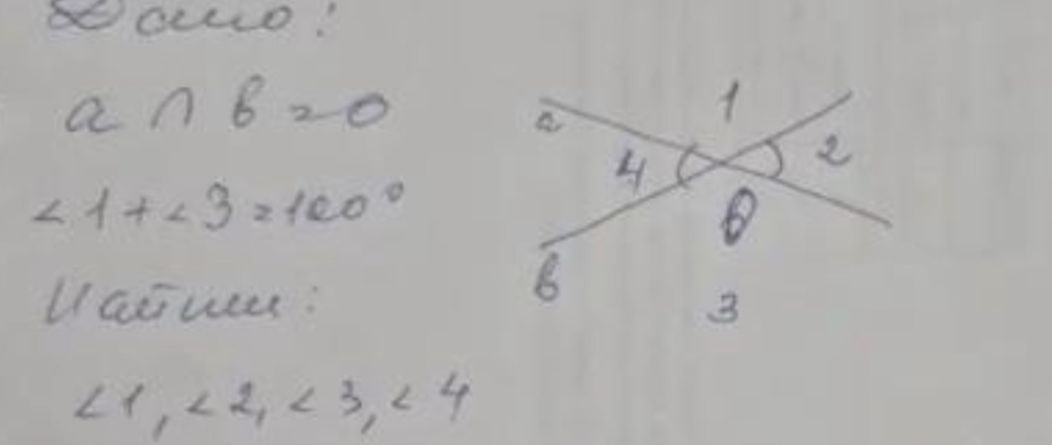 Дано:
a ∩ b = O
<1 + <3 = 100°
Найти:
<1, <2, <3, <4
1
a
4
2
O
b
3